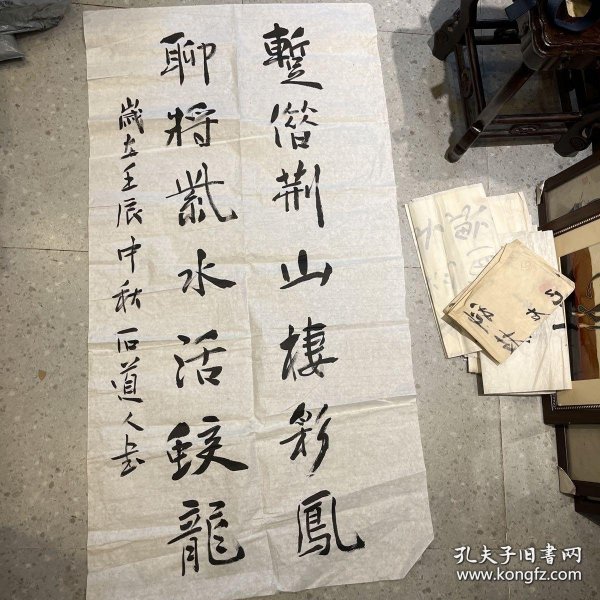 蹔借荆山棲彩鳳
聊將紫水活蛟龍
歲在壬辰中秋石道人书
孔夫子旧书网
www.kongfz.com